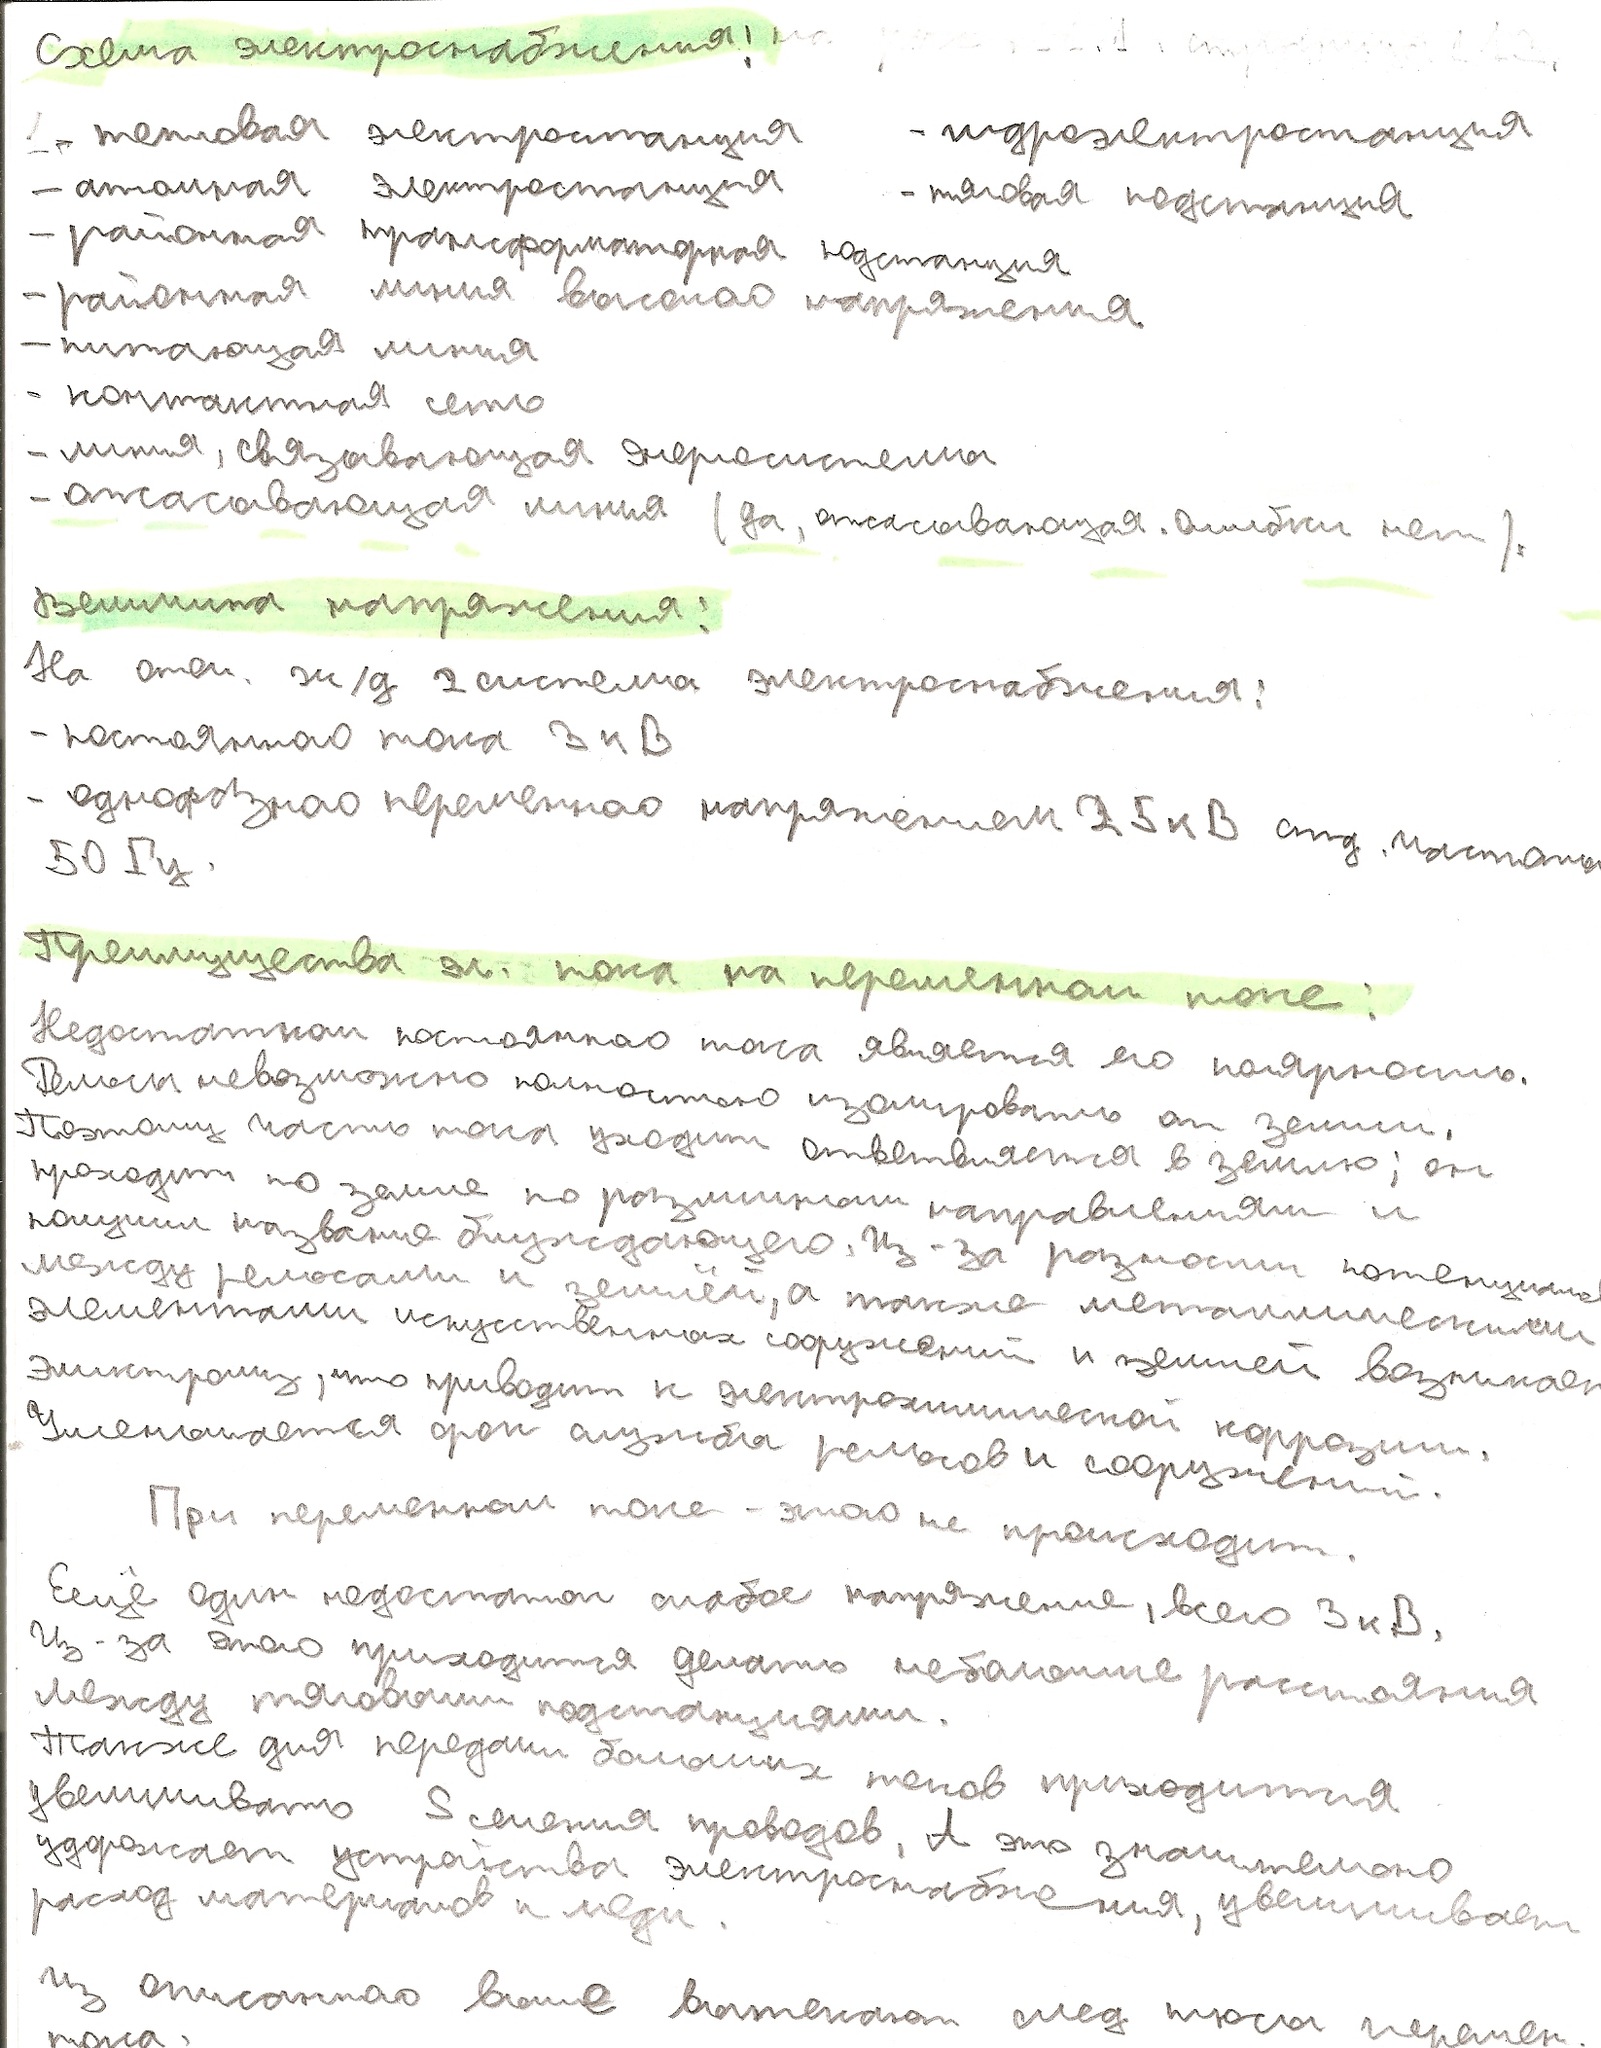 Схема электроснабжения:
- тепловая электростанция - гидроэлектростанция
- атомная электростанция - тяговая подстанция
- районная трансформаторная подстанция
- районная линия высокого напряжения
- питающая линия
- контактная сеть
- линия, связывающая энергосистемы
- отсасывающая линия (да, отсасывающая. Ошибки нет).
Величина напряжения:
На отеч. ж/д 2 система электроснабжения:
- постоянного тока 3 кВ
- однофазного переменного напряжением 25 кВ станд. частоты
50 Гц.
Преимущества эл. тока на переменном токе:
Недостатком постоянного тока является его полярность.
Рельсы невозможно полностью изолировать от земли.
Поэтому часть тока уходит ответвляется в землю; он
проходит по земле по различным направлениям и
получил название блуждающего. Из-за разности потенциалов
между рельсами и землёй, а также металлическими
элементами искусственных сооружений и землей возникает
электролиз, что приводит к электрохимической коррозии.
Уменьшается срок службы рельсов и сооружений.
При переменном токе - этого не происходит.
Ещё один недостаток слабое напряжение, всего 3 кВ.
Из-за этого приходится делать небольшие расстояния
между тяговыми подстанциями.
Также для передачи больших токов приходится
увеличивать S сечения проводов, А это значительно
удорожает устройства электроснабжения, увеличивает
расход материалов и меди.
Из описанного выше вытекают след плюсы перемен.
тока.